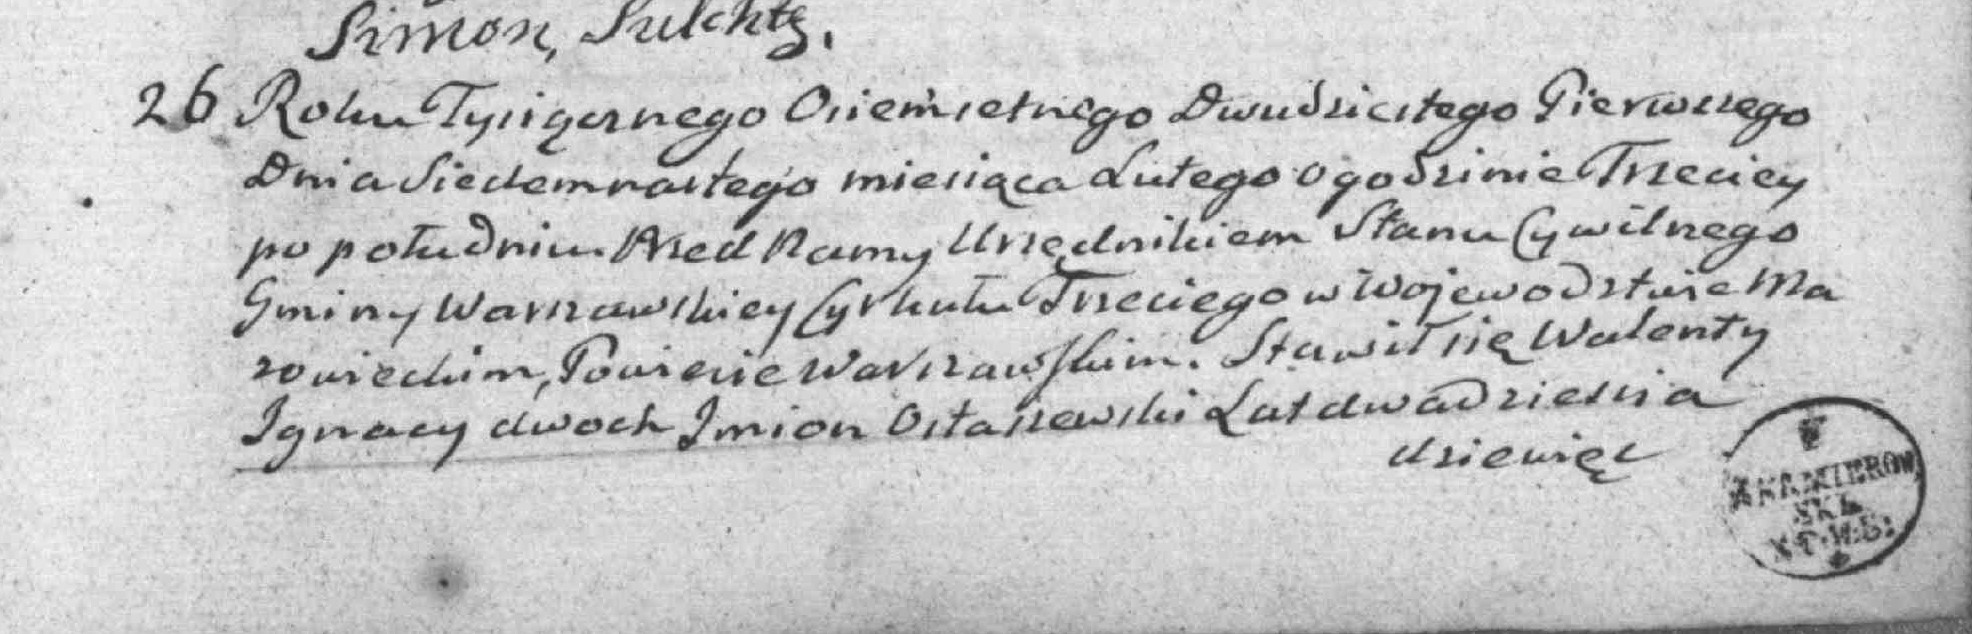 Simon, Sulchtz.
26 Roku Tysiącznego Osiemsetnego Dwudziestego Pierwszego
Dnia Siedemnastego miesiąca Lutego o godzinie Trzeciey
po południu. Przed Namy Urzędnikiem Stanu Cywilnego
Gminy Warszawskiey Cyrkułu Trzeciego w Wojewodztwie Ma
zowieckim, Powiecie Warszawskim. Stawił się Walenty
Ignacy dwoch Jmion Ostaszewski Lat dwadziescia
dziewięć